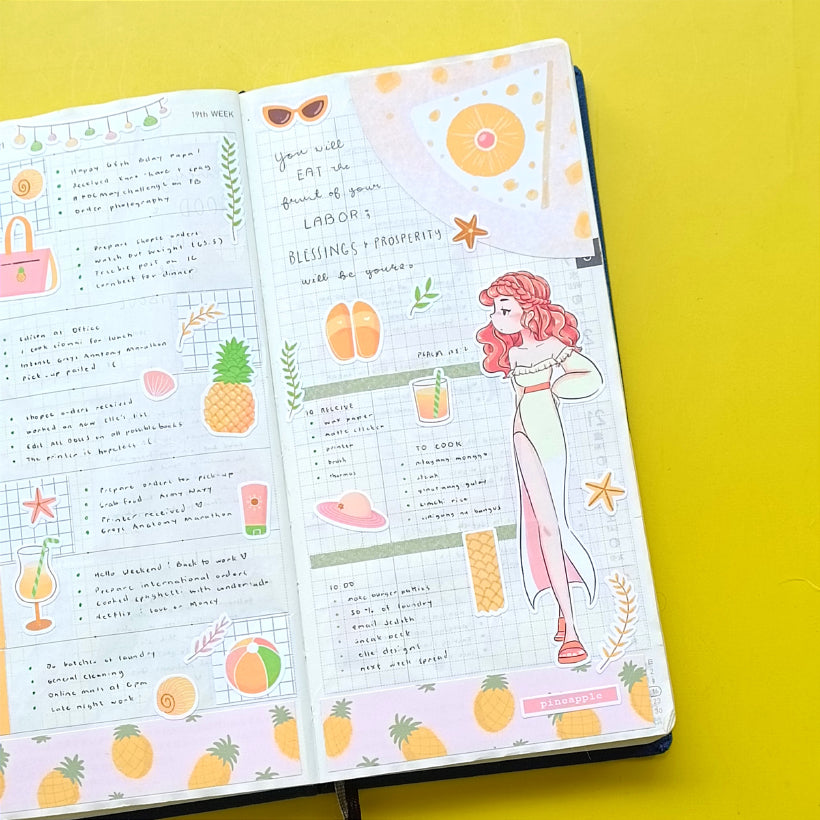 19th WEEK
Happy 65th Bday Papa!
order photography
Prepare shopee orders
watch out weight (65.5)
Freebie post on IG
cornbeef for dinner
Edison at Office
I cook sinigang for lunch
Intense Greys Anatomy Marathon
shopee orders received
worked on new elle's list
Edit ALL BOXES on all possible books
The printer is hopeless :(
Prepare orders for pick-up
Grab food: Army Navy
Printer received ♡
Greys Anatomy Marathon
Hello Weekend! Back to work ♡
Prepare international orders
Cooked spaghetti with
Netflix: Love or Money
Do batches of laundry
General cleaning
Online mass at 6pm
Late night work
You will
EAT the
fruit of your
LABOR;
BLESSINGS + PROSPERITY
will be yours.
PSALM 128:2
TO RECEIVE
wax paper
matte sticker
printer
brush
thermos
TO COOK
ginisang monggo
steak
ginataang gulay
kimchi rice
sinigang na bangus
TO DO
make burger patties
50% of laundry
email Jedeth
sneak peek
elle designs
next week spread
pineapple